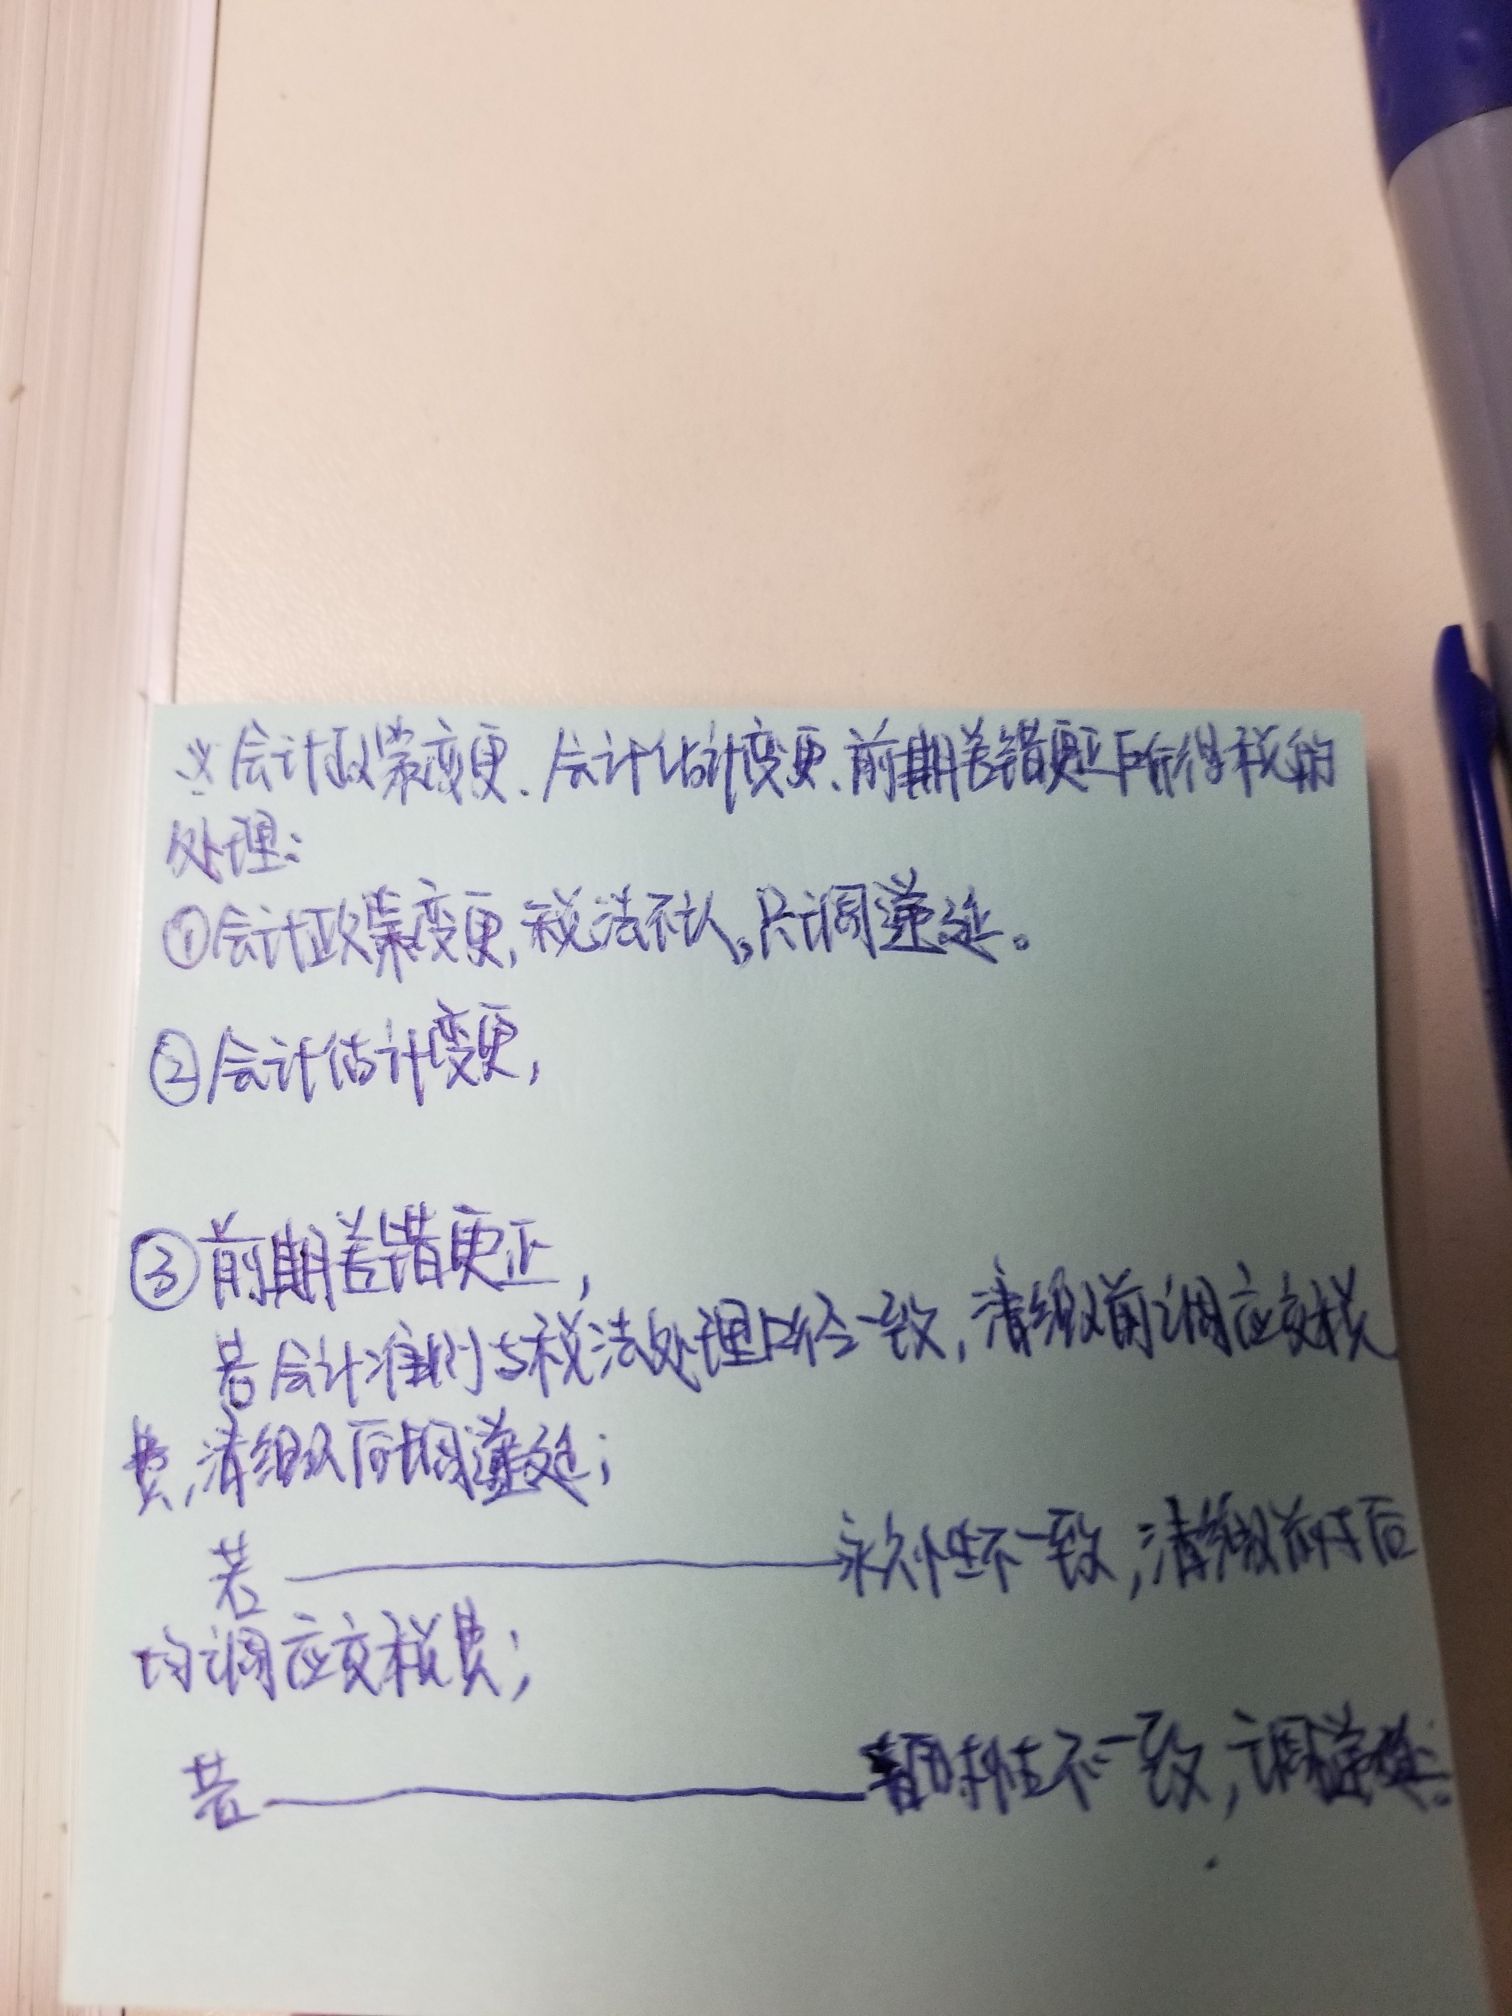 ※会计政策变更、会计估计变更、前期差错更正所得税的
处理:
①会计政策变更,税法不认。只调递延。
②会计估计变更,
③前期差错更正,
若会计准则与税法处理口径一致,清缴前调应交税
费,清缴后调递延;
若——————永久性不一致,清缴前后
均调应交税费;
若——————暂时性不一致,调递延。